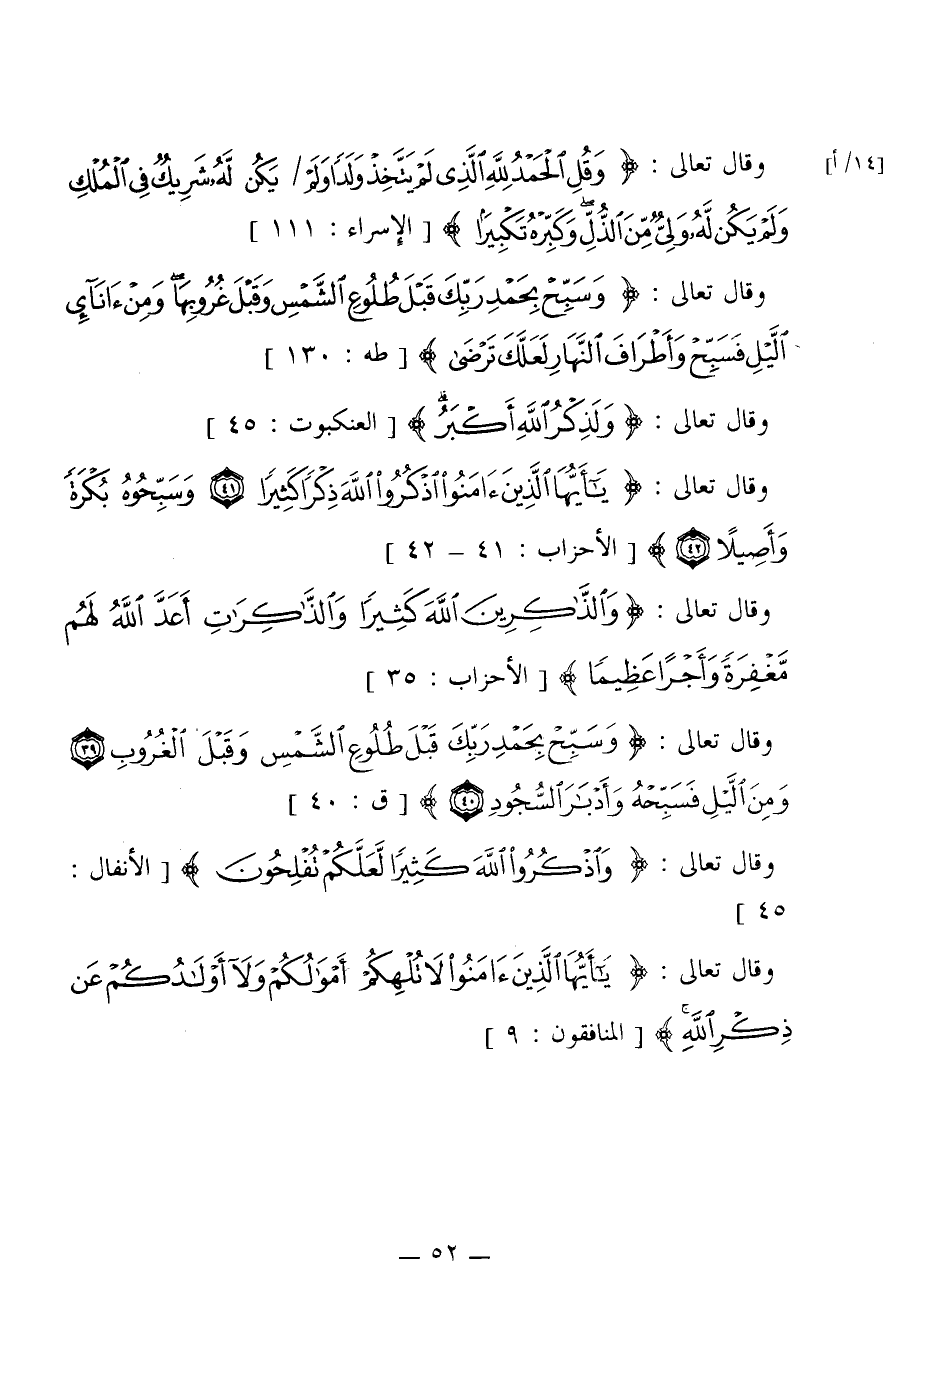 [١٤/ أ] وقال تعالى : ﴿ وَقُلِ ٱلْحَمْدُ لِلَّهِ ٱلَّذِى لَمْ يَتَّخِذْ وَلَدًا وَلَمْ / يَكُن لَّهُۥ شَرِيكٌ فِى ٱلْمُلْكِ
وَلَمْ يَكُن لَّهُۥ وَلِىٌّ مِّنَ ٱلذُّلِّ ۖ وَكَبِّرْهُ تَكْبِيرًۢا ﴾ [ الإسراء : ١١١ ]
وقال تعالى : ﴿ وَسَبِّحْ بِحَمْدِ رَبِّكَ قَبْلَ طُلُوعِ ٱلشَّمْسِ وَقَبْلَ غُرُوبِهَا ۖ وَمِنْ ءَانَآئِ
ٱلَّيْلِ فَسَبِّحْ وَأَطْرَافَ ٱلنَّهَارِ لَعَلَّكَ تَرْضَىٰ ﴾ [ طه : ١٣٠ ]
وقال تعالى : ﴿ وَلَذِكْرُ ٱللَّهِ أَكْبَرُ ۗ ﴾ [ العنكبوت : ٤٥ ]
وقال تعالى : ﴿ يَـٰٓأَيُّهَا ٱلَّذِينَ ءَامَنُوا۟ ٱذْكُرُوا۟ ٱللَّهَ ذِكْرًا كَثِيرًا ٤١ وَسَبِّحُوهُ بُكْرَةً
وَأَصِيلًا ٤٢ ﴾ [ الأحزاب : ٤١ – ٤٢ ]
وقال تعالى : ﴿ وَٱلذَّٰكِرِينَ ٱللَّهَ كَثِيرًا وَٱلذَّٰكِرَٰتِ أَعَدَّ ٱللَّهُ لَهُم
مَّغْفِرَةً وَأَجْرًا عَظِيمًا ﴾ [ الأحزاب : ٣٥ ]
وقال تعالى : ﴿ وَسَبِّحْ بِحَمْدِ رَبِّكَ قَبْلَ طُلُوعِ ٱلشَّمْسِ وَقَبْلَ ٱلْغُرُوبِ ٣٩
وَمِنَ ٱلَّيْلِ فَسَبِّحْهُ وَأَدْبَـٰرَ ٱلسُّجُودِ ٤٠ ﴾ [ ق : ٤٠ ]
وقال تعالى : ﴿ وَٱذْكُرُوا۟ ٱللَّهَ كَثِيرًا لَّعَلَّكُمْ تُفْلِحُونَ ﴾ [ الأنفال :
٤٥ ]
وقال تعالى : ﴿ يَـٰٓأَيُّهَا ٱلَّذِينَ ءَامَنُوا۟ لَا تُلْهِكُمْ أَمْوَٰلُكُمْ وَلَآ أَوْلَـٰدُكُمْ عَن
ذِكْرِ ٱللَّهِ ۚ ﴾ [ المنافقون : ٩ ]
— ٥٢ —